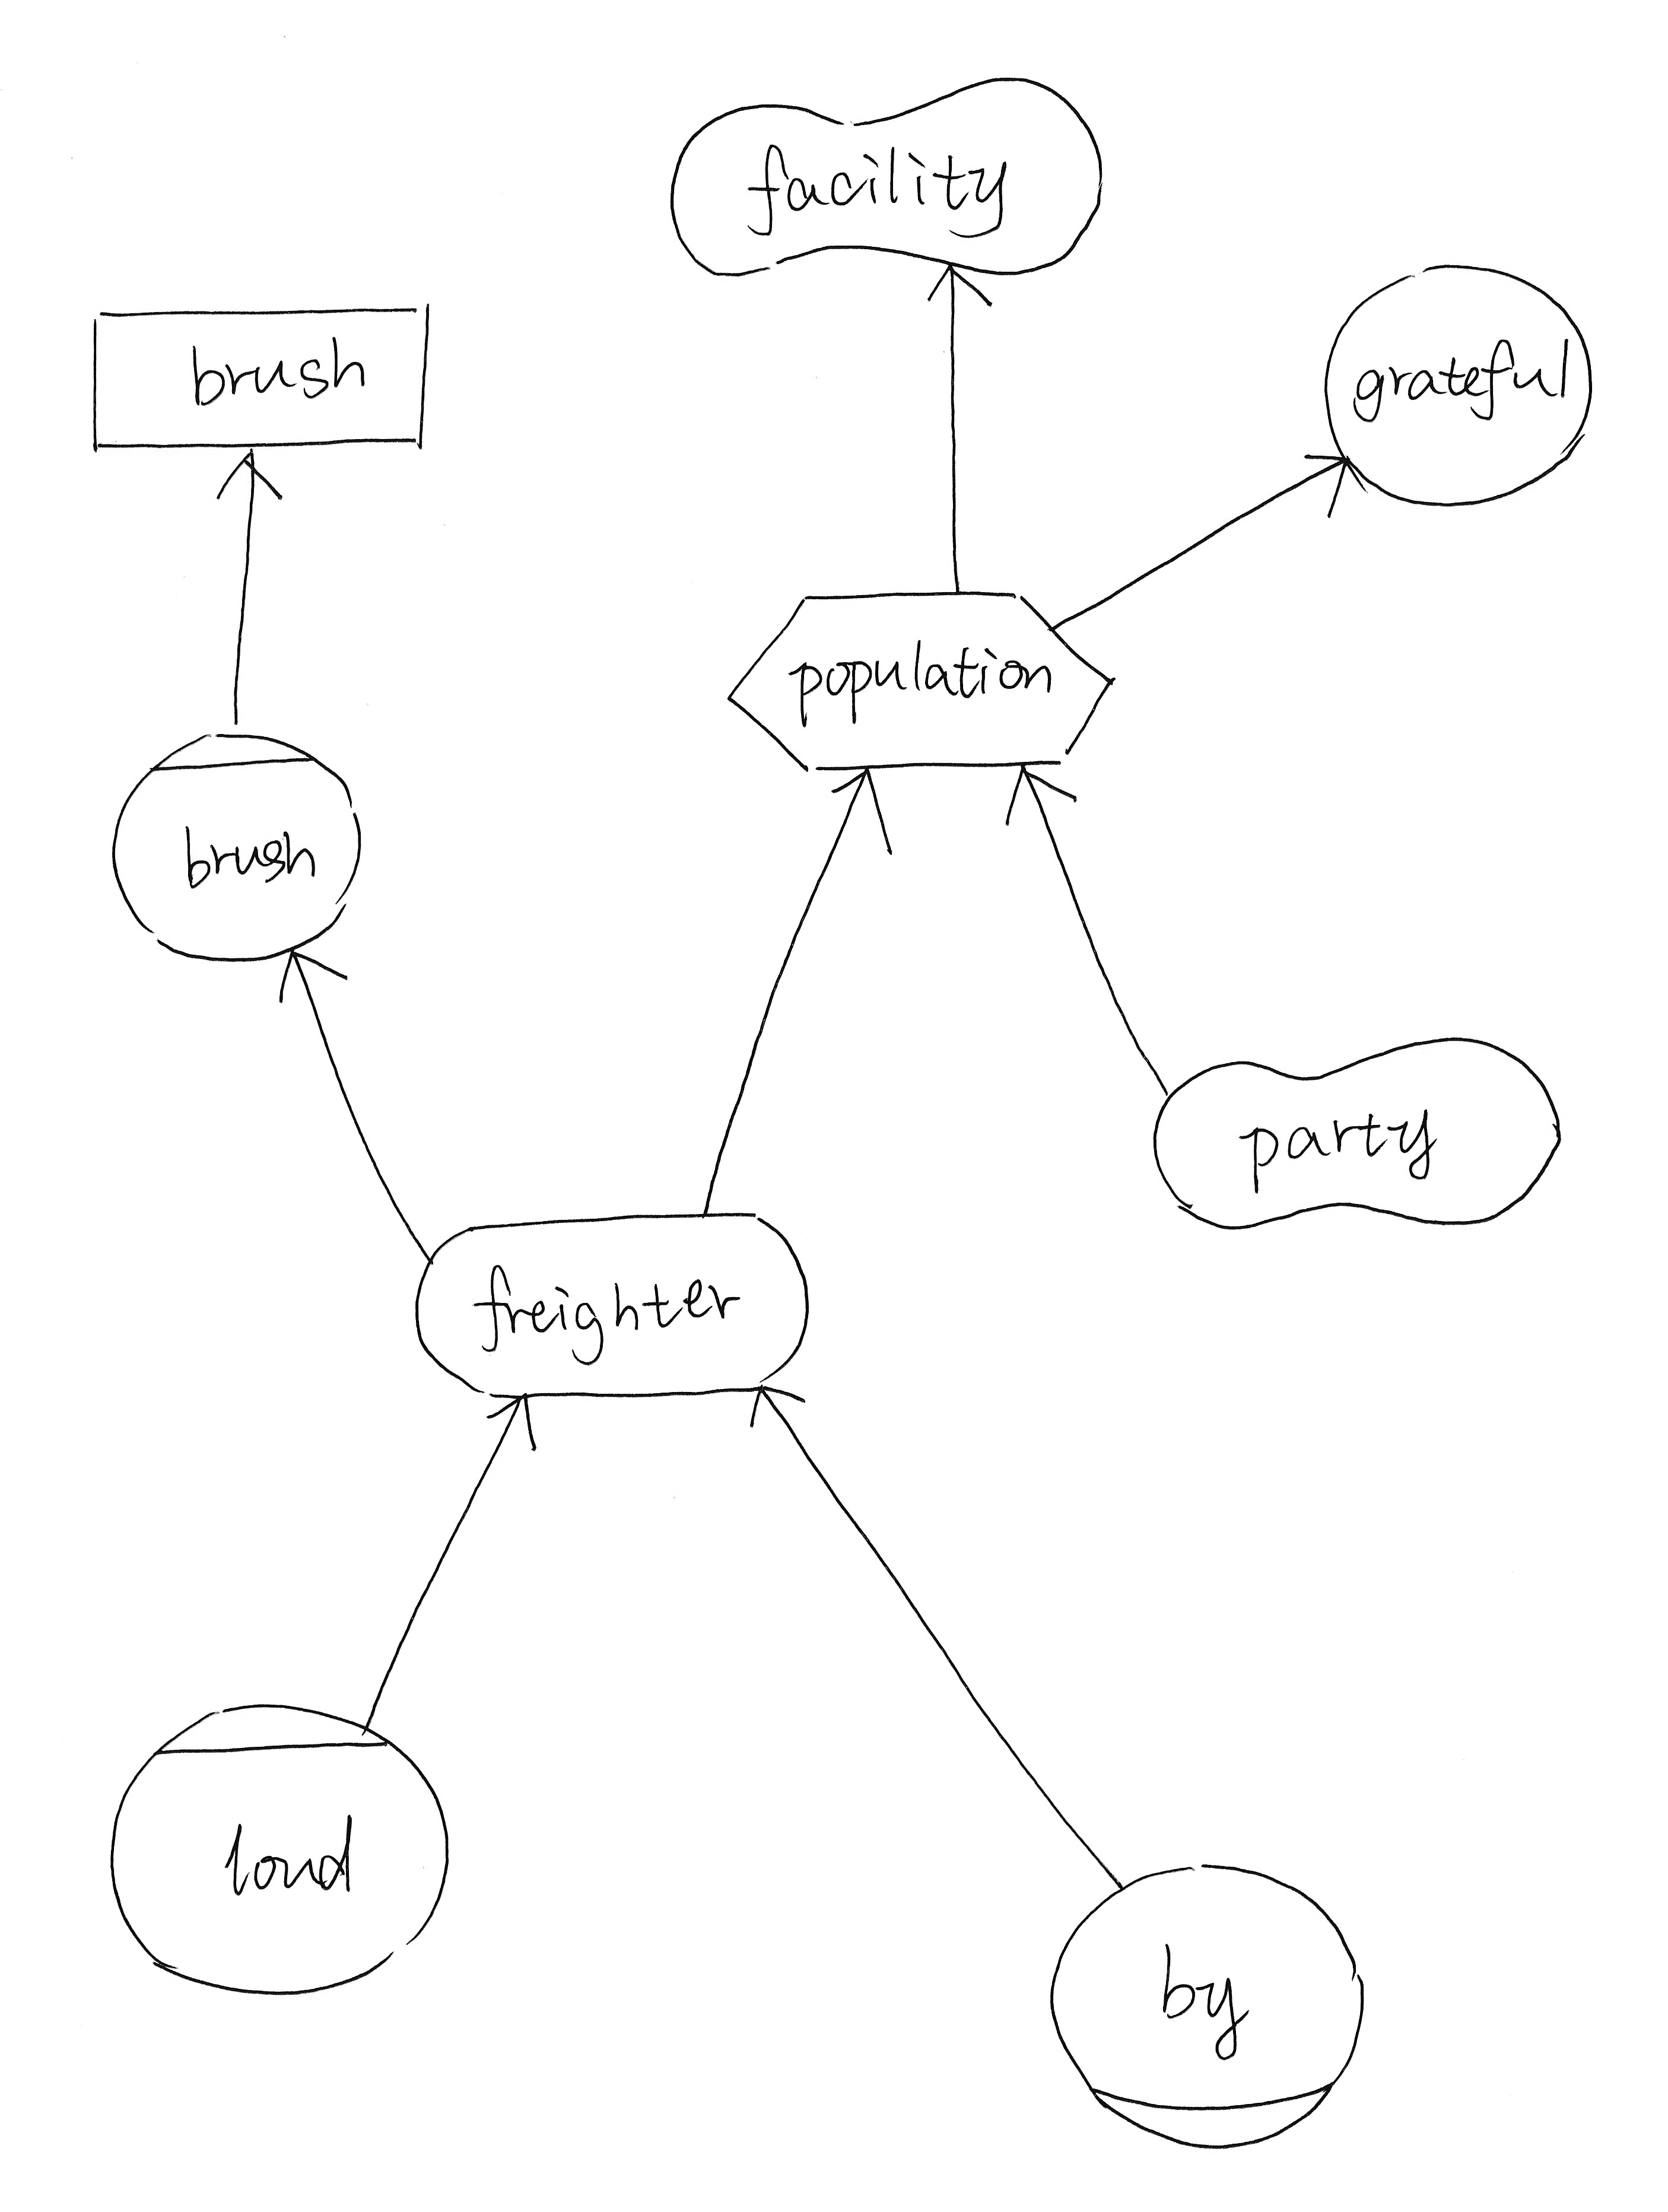 facility
brush
grateful
population
brush
party
freighter
loud
by